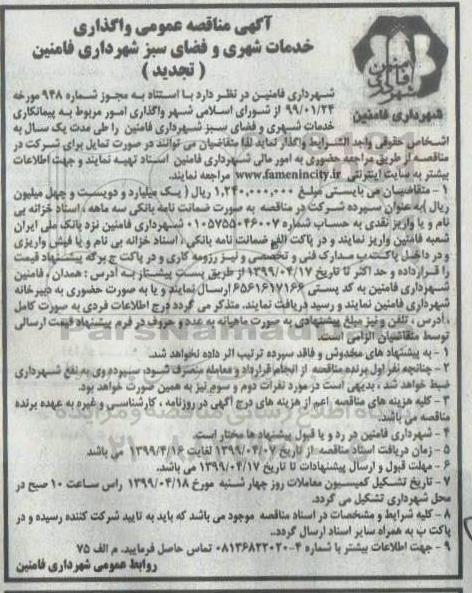 آگهی مناقصه عمومی واگذاری
خدمات شهری و فضای سبز شهرداری فامنین
( تجدید )
شهرداری فامنین
شهرداری فامنین در نظر دارد با استناد به مجوز شماره ۹۴۸ مورخه
۹۹/۰۱/۲۴ از شورای اسلامی شهر واگذاری امور مربوط به پیمانکاری
خدمات شهری و فضای سبز شهرداری فامنین را طی مدت یک سال به
اشخاص حقوقی واجد الشرایط واگذار نماید لذا متقاضیان می توانند در صورت تمایل برای شرکت در
مناقصه از طریق مراجعه حضوری به امور مالی شهرداری فامنین اسناد تهیه نمایند و جهت اطلاعات
بیشتر به سایت اینترنتی www.famenincity.ir مراجعه نمایند.
۱ - متقاضیان می بایستی مبلغ ۱,۲۴۰,۰۰۰,۰۰۰ ریال ( یک میلیارد و دویست و چهل میلیون
ریال )به عنوان سپرده شرکت در مناقصه به صورت ضمانت نامه بانکی سه ماهه ، اسناد خزانه بی
نام و یا واریز نقدی به حساب شماره ۰۱۰۵۷۵۵۰۴۶۰۰۷ شهرداری فامنین نزد بانک ملی ایران
شعبه فامنین واریز نمایند و در پاکت الف ضمانت نامه بانکی ، اسناد خزانه بی نام و یا فیش واریزی
و در داخل پاکت ب مدارک فنی و تخصصی و نیز رزومه کاری و در پاکت ج برگه پیشنهاد قیمت
را قرار داده و حد اکثر تا تاریخ ۱۳۹۹/۰۴/۱۷ از طریق پست پیشتاز به آدرس : همدان ، فامنین
شهرداری فامنین به کد پستی ۶۵۶۱۶۱۷۱۶۶ ارسال نمایند و یا به صورت حضوری به دبیرخانه
شهرداری فامنین نمایند و رسید دریافت نمایند. متذکر می گردد درج اطلاعات فردی به صورت کامل
، آدرس ، تلفن و نیز مبلغ پیشنهادی به صورت ماهیانه به عدد و حروف در فرم پیشنهاد قیمت ارسالی
توسط متقاضیان الزامی است.
۱ - به پیشنهاد های مخدوش و فاقد سپرده ترتیب اثر داده نخواهد شد.
۲ - چنانچه نفر اول برنده مناقصه از انجام قرارداد و معامله منصرف شود، سپرده وی به نفع شهرداری
ضبط خواهد شد ، بدیهی است در مورد نفرات دوم و سوم نیز به همین صورت خواهد بود.
۳ - کلیه هزینه های مناقصه اعم از هزینه های درج آگهی در روزنامه ، کارشناسی و غیره به عهده برنده
مناقصه می باشد.
۴ - شهرداری فامنین در رد و یا قبول پیشنهاد ها مختار است.
۵ - زمان دریافت اسناد مناقصه از تاریخ ۱۳۹۹/۰۴/۰۷ لغایت ۱۳۹۹/۴/۱۶ می باشد
۶ - مهلت قبول و ارسال پیشنهادات تا تاریخ ۱۳۹۹/۰۴/۱۷ می باشد.
۷ - تاریخ تشکیل کمیسیون معاملات روز چهار شنبه مورخ ۱۳۹۹/۰۴/۱۸ راس ساعت ۱۰ صبح در
محل شهرداری تشکیل می گردد.
۸ - کلیه شرایط و مشخصات در اسناد مناقصه موجود می باشد که باید به تایید شرکت کننده رسیده و در
پاکت ب به همراه سایر اسناد ارسال گردد..
۹ - جهت اطلاعات بیشتر با شماره ۴-۰۸۱۳۶۸۲۲۰۲۰ تماس حاصل فرمایید. م الف ۷۵
روابط عمومی شهرداری فامنین